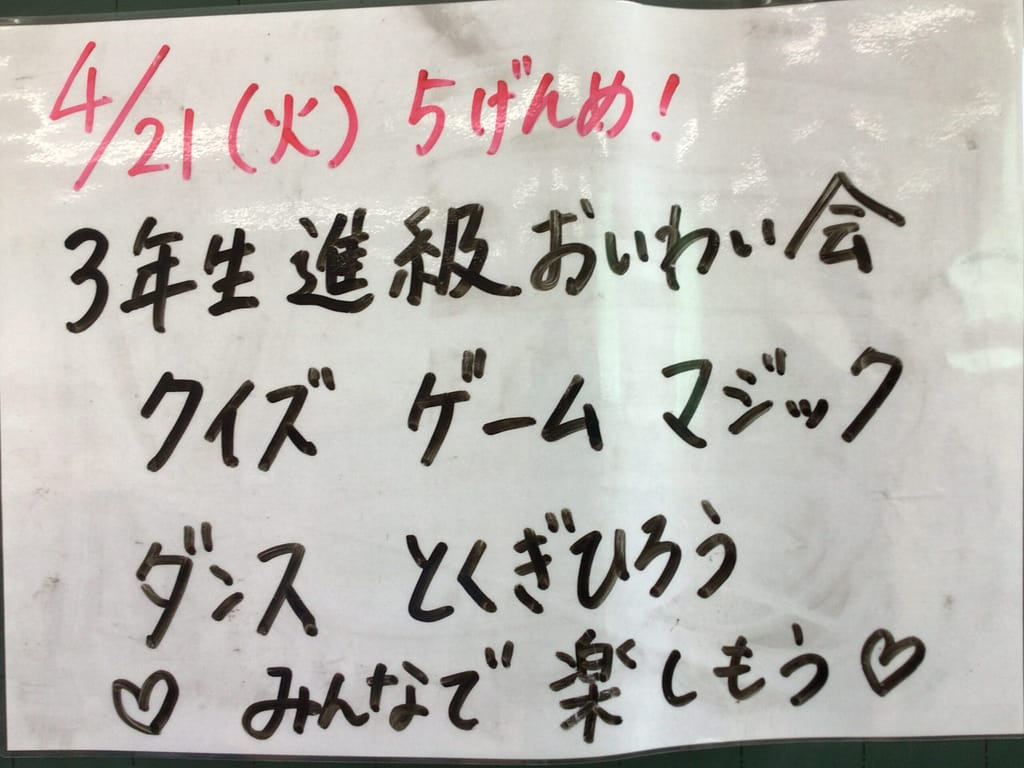 4/21(火) 5げんめ!
3年生進級おいわい会
クイズ ゲーム マジック
ダンス とくぎひろう
♡ みんなで 楽しもう♡